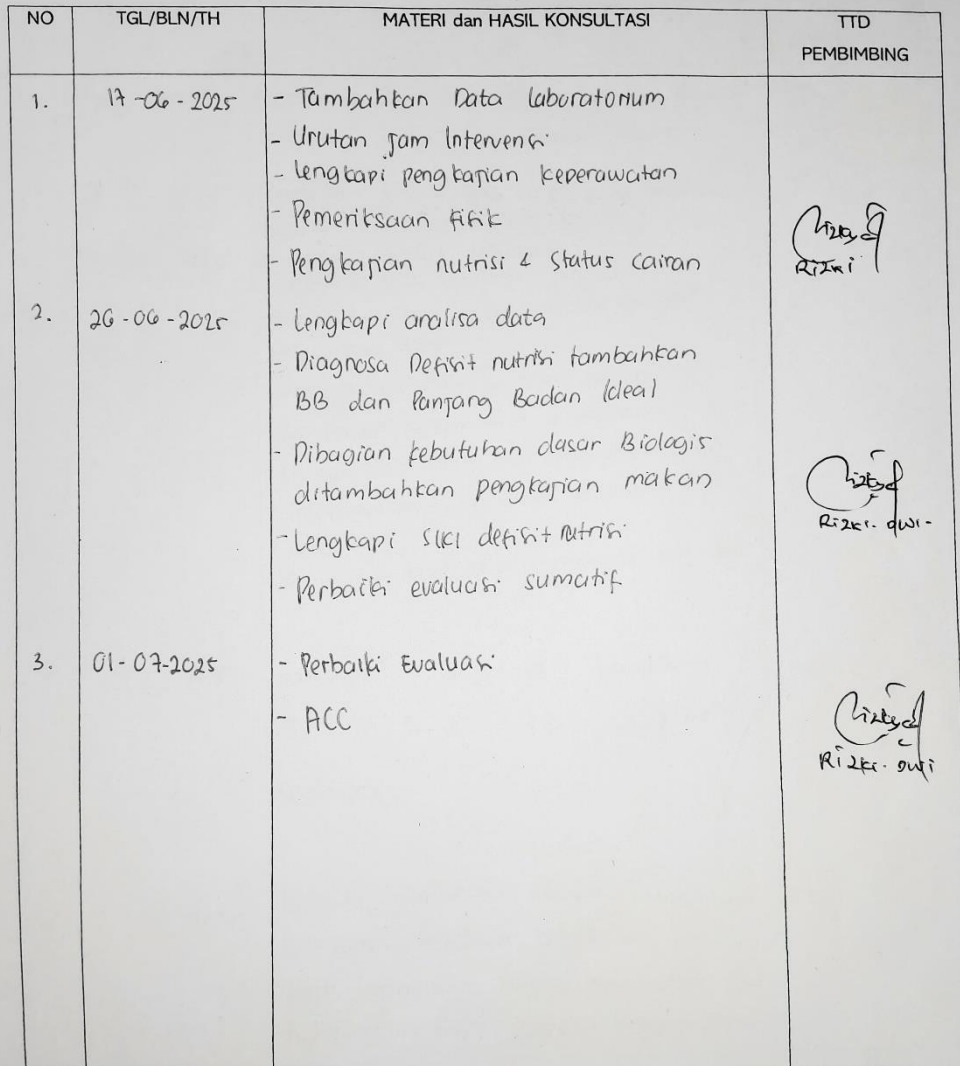 NO TGL/BLN/TH MATERI dan HASIL KONSULTASI TTD
PEMBIMBING
1. 17-06-2025 - Tambahkan Data laboratorium
- Urutan Jam Intervensi
- Lengkapi pengkajian keperawatan
- Pemeriksaan fisik
- Pengkajian nutrisi & Status cairan
Rizki
2. 26-06-2025 - Lengkapi analisa data
- Diagnosa Defisit nutrisi tambahkan
BB dan Panjang Badan Ideal
- Dibagian kebutuhan dasar Biologis
ditambahkan pengkajian makan
Rizki. dwi-
- Lengkapi SIKI defisit nutrisi
- Perbaiki evaluasi sumatif
3. 01-07-2025 - Perbaiki Evaluasi
- ACC
Rizki. dwi